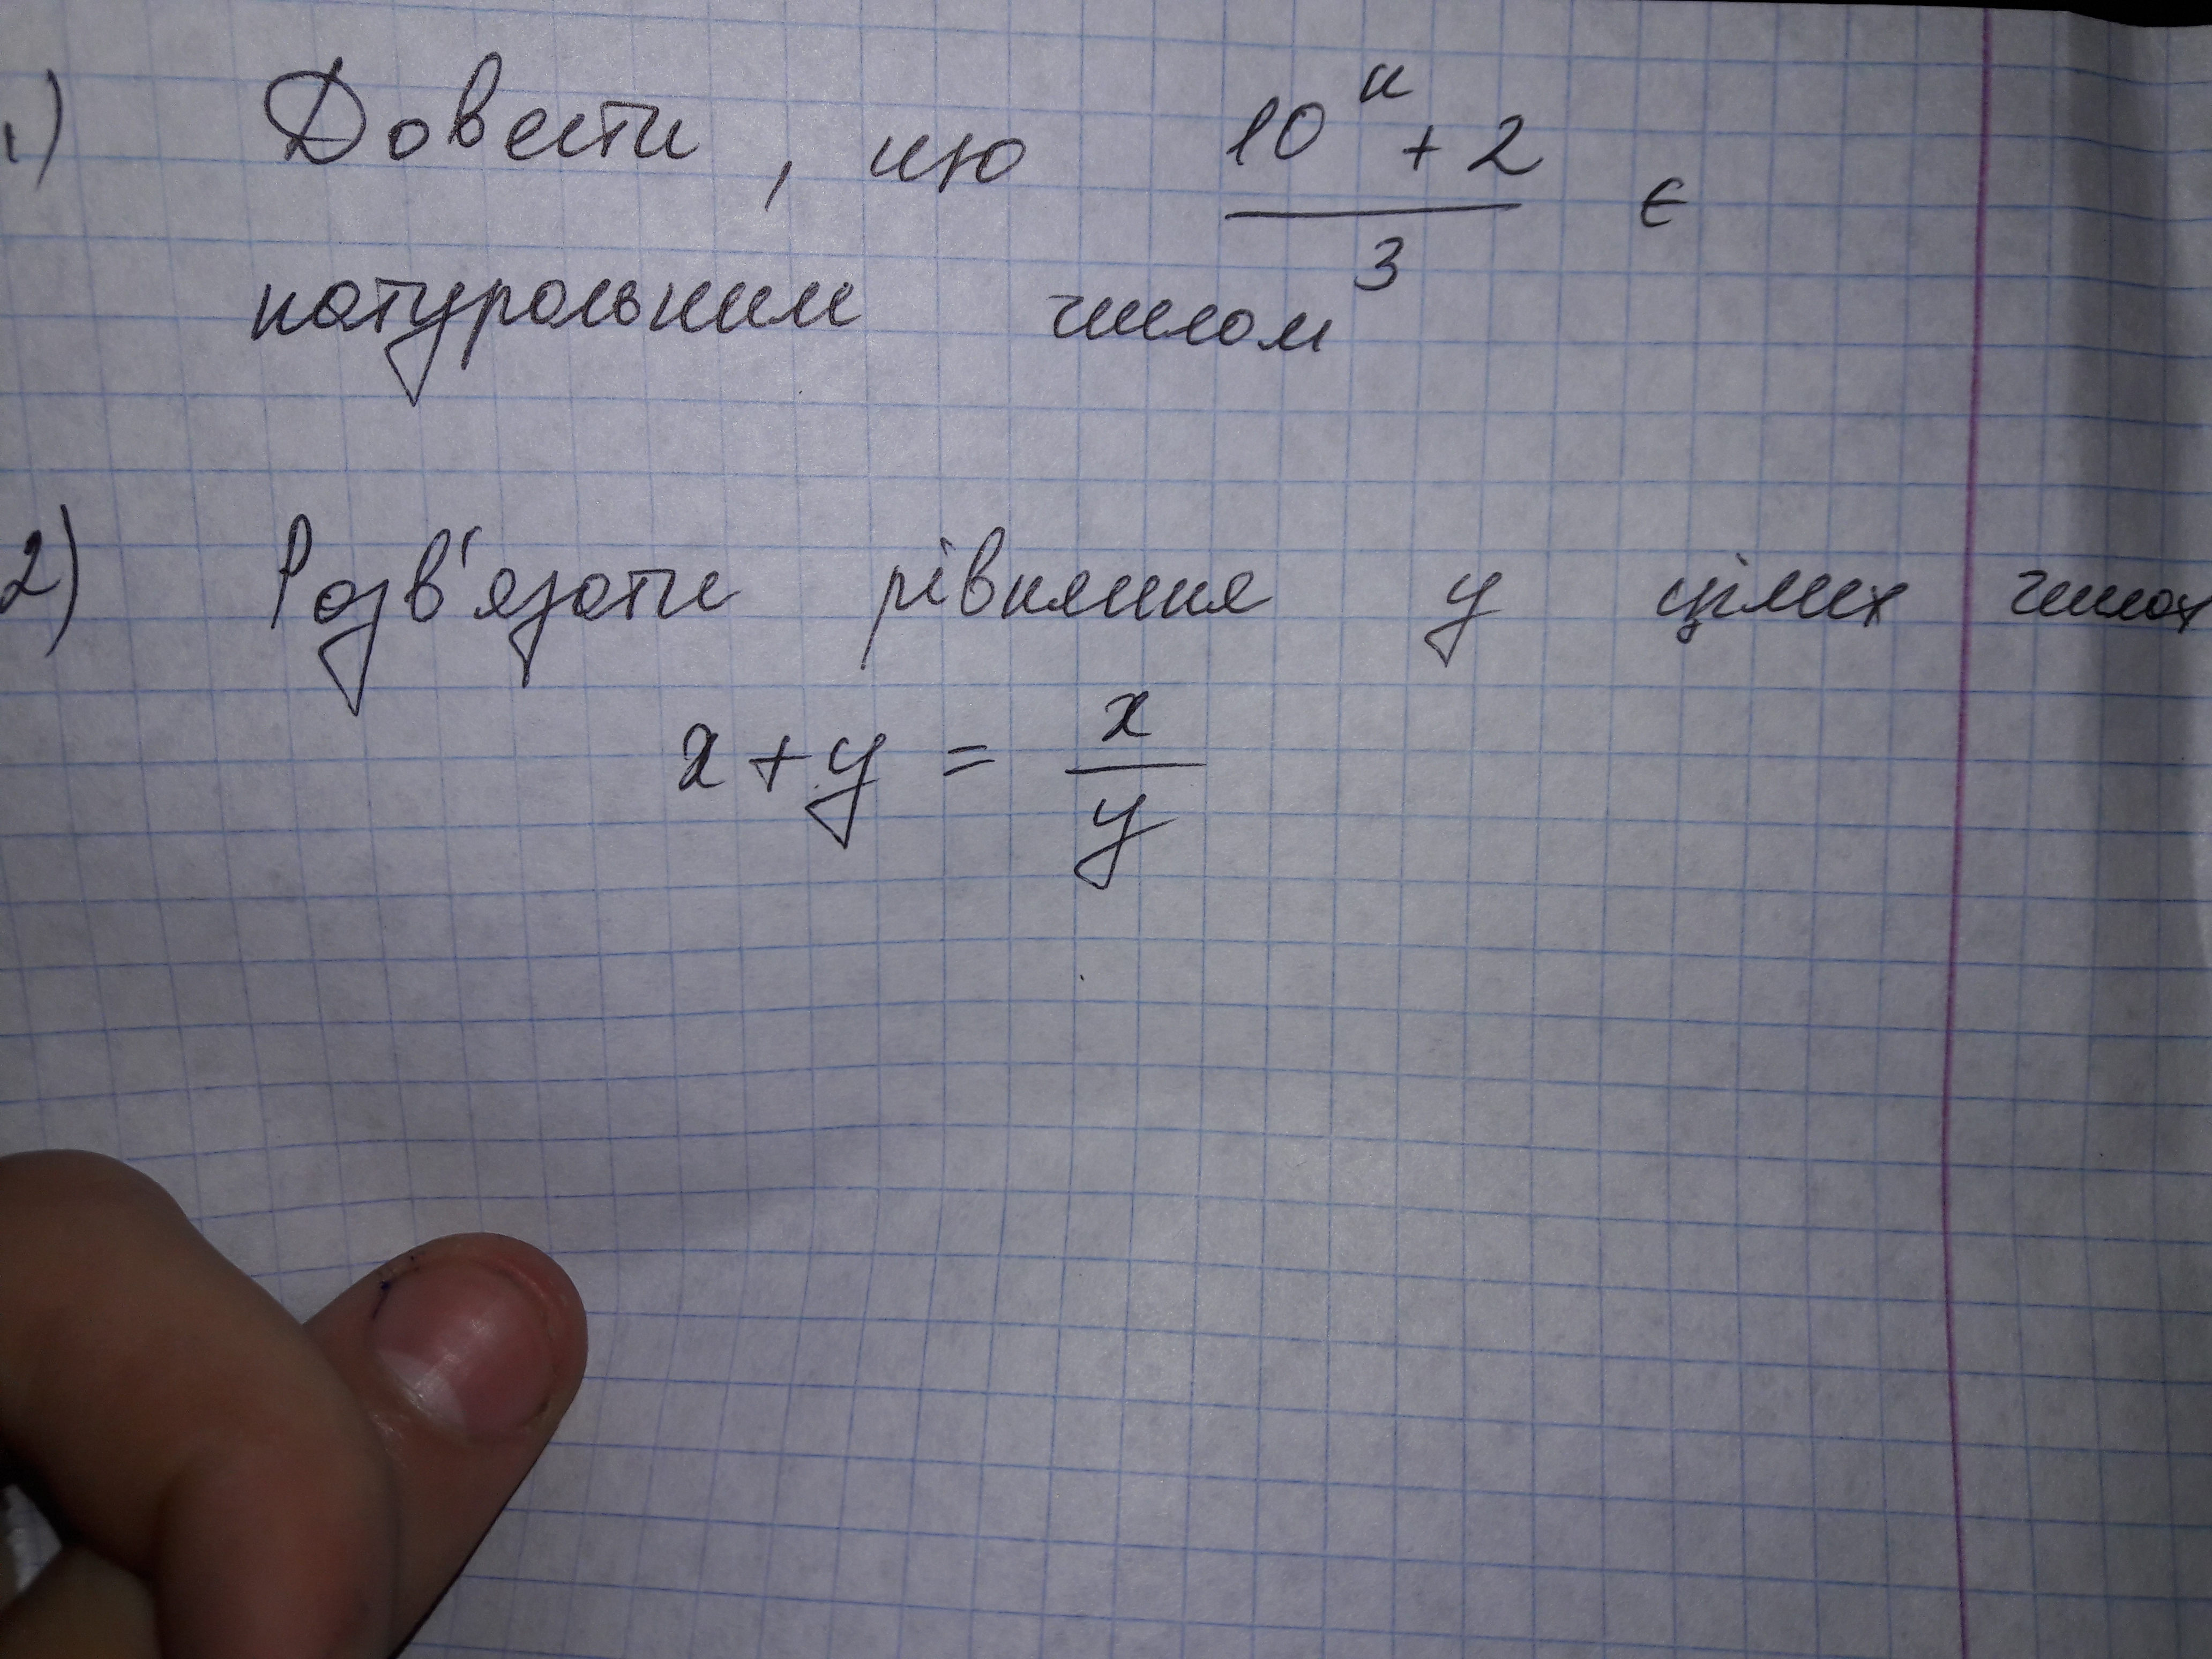 1) Довести, що (10^n + 2)/3 є
натуральним числом
2) Розв'язати рівняння у цілих числах
x + y = x/y